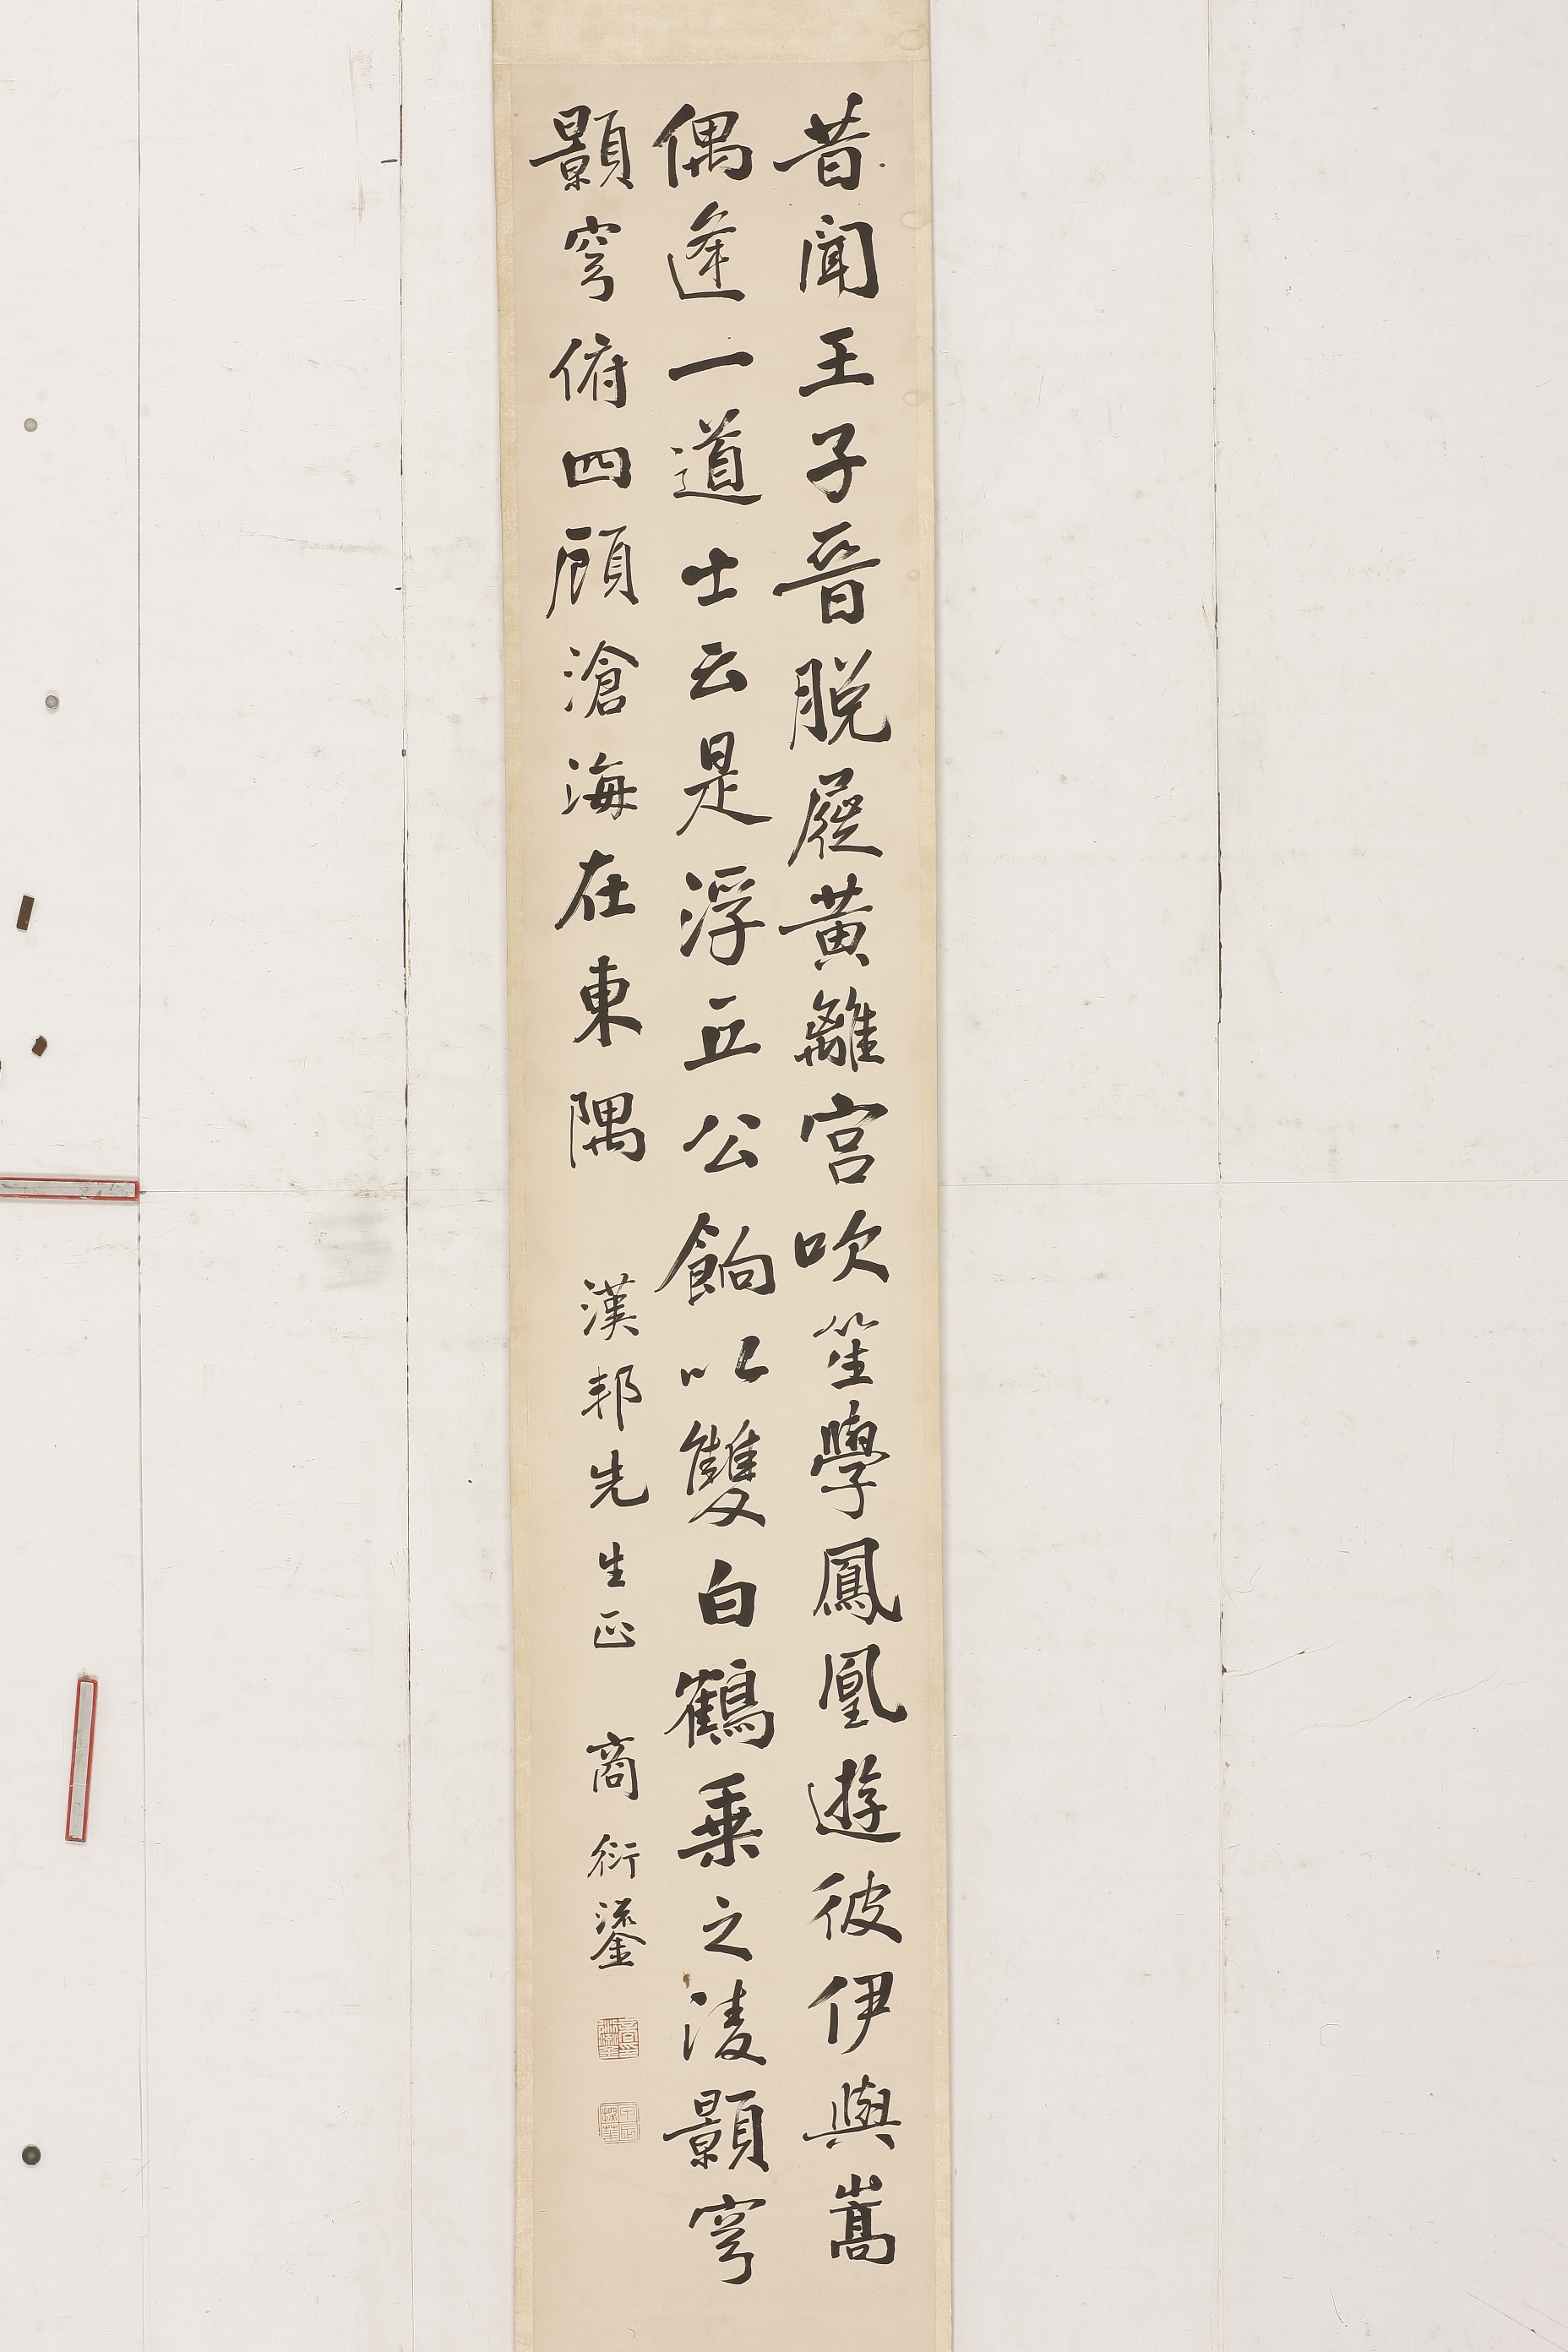 昔聞王子晉脫屣黃離宮吹笙學鳳凰遊彼伊與嵩
偶逢一道士云是浮丘公餉以雙白鶴乘之淩顥穹
顥穹俯四顧滄海在東隅 漢邦先生正 商衍鎏